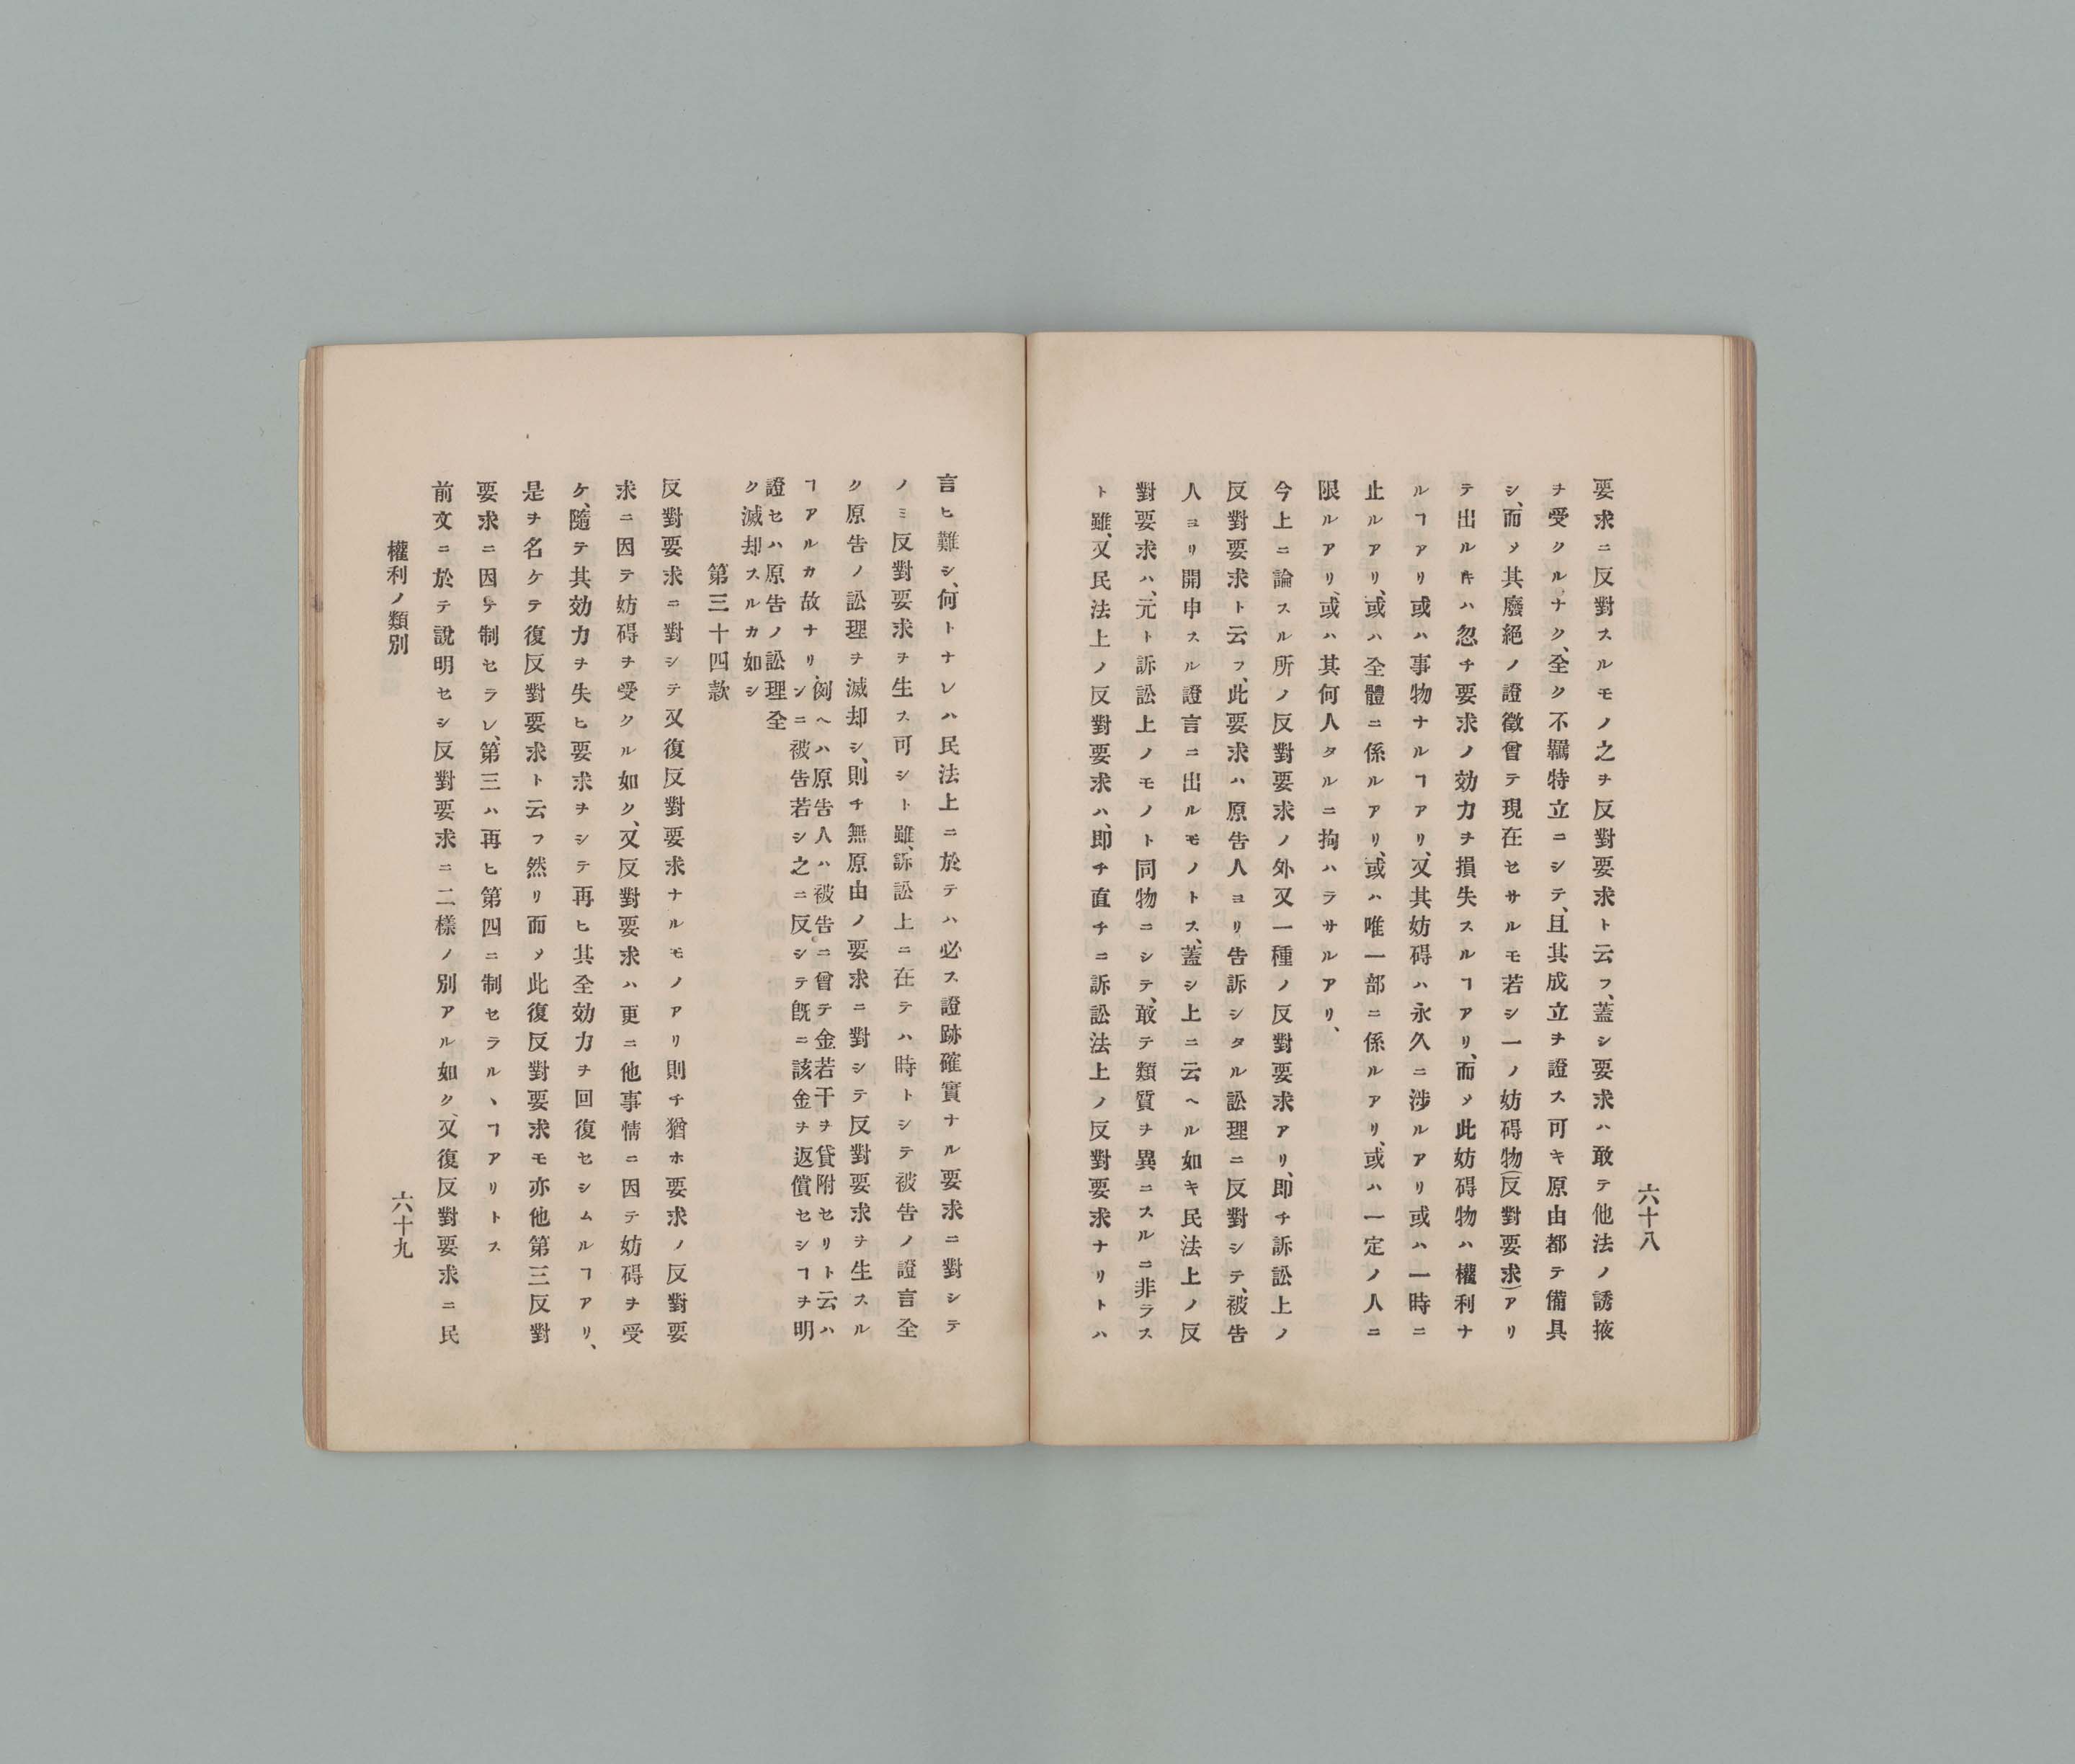 六十八
要求ニ反對スルモノ之ヲ反對要求ト云フ、蓋シ要求ハ敢テ他法ノ誘掖
ヲ受クルナク、全ク不羈特立ニシテ、且其成立ヲ證ス可キ原由都テ備具
シ、而〆其廢絕ノ證徵曾テ現在セサルモ若シ一ノ妨碍物(反對要求)アリ
テ出ルキハ忽チ要求ノ効力ヲ損失スルヿアリ、而〆此妨碍物ハ權利ナ
ルヿアリ或ハ事物ナルヿアリ、又其妨碍ハ永久ニ涉ルアリ或ハ一時ニ
止ルアリ、或ハ全體ニ係ルアリ、或ハ唯一部ニ係ルアリ、或ハ一定ノ人ニ
限ルアリ、或ハ其何人タルニ拘ハラサルアリ、
今上ニ論スル所ノ反對要求ノ外又一種ノ反對要求アリ、即チ訴訟上ノ
反對要求ト云フ、此要求ハ原告人ヨリ告訴シタル訟理ニ反對シテ、被告
人ヨリ開申スル證言ニ出ルモノトス、蓋シ上ニ云ヘル如キ民法上ノ反
對要求ハ、元ト訴訟上ノモノト同物ニシテ、敢テ類質ヲ異ニスルニ非ラス
ト雖、又民法上ノ反對要求ハ、即チ直チニ訴訟法上ノ反對要求ナリトハ
言ヒ難シ、何トナレハ民法上ニ於テハ必ス證跡確實ナル要求ニ對シテ
ノミ反對要求ヲ生ス可シト雖、訴訟上ニ在テハ時トシテ被告ノ證言全
ク原告ノ訟理ヲ滅却シ、則チ無原由ノ要求ニ對シテ反對要求ヲ生スル
ヿアルカ故ナリ、例ヘハ原告人ハ被告ニ曾テ金若干ヲ貸附セリト云ハ
ンニ被告若シ之ニ反シテ既ニ該金ヲ返償セシヿヲ明
證セハ原告ノ訟理全
ク滅却スルカ如シ
第三十四款
反對要求ニ對シテ又復反對要求ナルモノアリ則チ猶ホ要求ノ反對要
求ニ因テ妨碍ヲ受クル如ク、又反對要求ハ更ニ他事情ニ因テ妨碍ヲ受
ケ、隨テ其効力ヲ失ヒ要求ヲシテ再ヒ其全効力ヲ回復セシムルヿアリ、
是ヲ名ケテ復反對要求ト云フ然リ而〆此復反對要求モ亦他第三反對
要求ニ因テ制セラレ、第三ハ再ヒ第四ニ制セラルヽヿアリトス
前文ニ於テ說明セシ反對要求ニ二樣ノ別アル如ク、又復反對要求ニ民
權利ノ類別
六十九